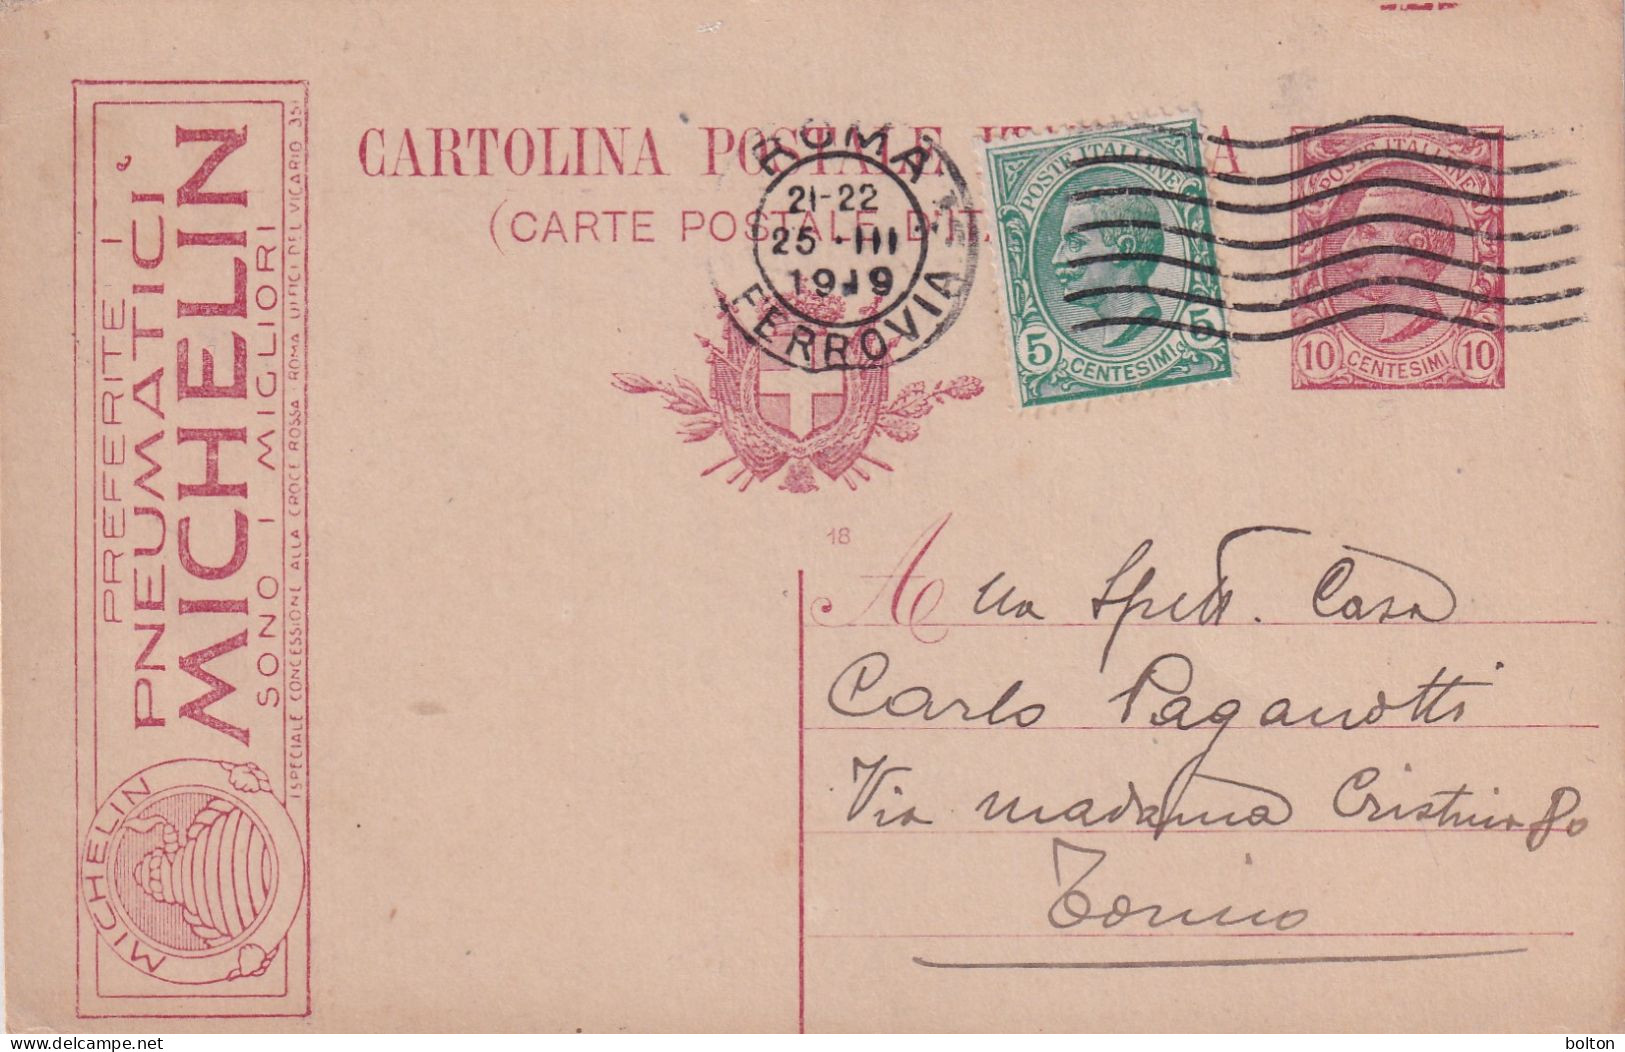 CARTOLINA POSTALE
(CARTE POSTALE D'IT
ROMA
21-22
25 · III
1919
FERROVIA
POSTE ITALIANE
5 CENTESIMI 5
POSTE ITALIANE
10 CENTESIMI 10
PREFERITE I
PNEUMATICI
MICHELIN
SONO I MIGLIORI
SPECIALE CONCESSIONE ALLA CROCE ROSSA ROMA UFFICI DEL VICARIO 35
MICHELIN
18
A lla Spett. Casa
Carlo Paganotti
Via Madama Cristina 80
Torino
delcampe.net
bolton